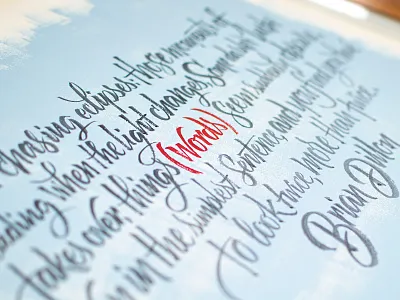 chasing eclipses. those moments of
reading when the light changes. Somebody
takes over, things (Words) Seem suddenly
in the simplest Sentence and you find
to look twice, more than twice.
Brian